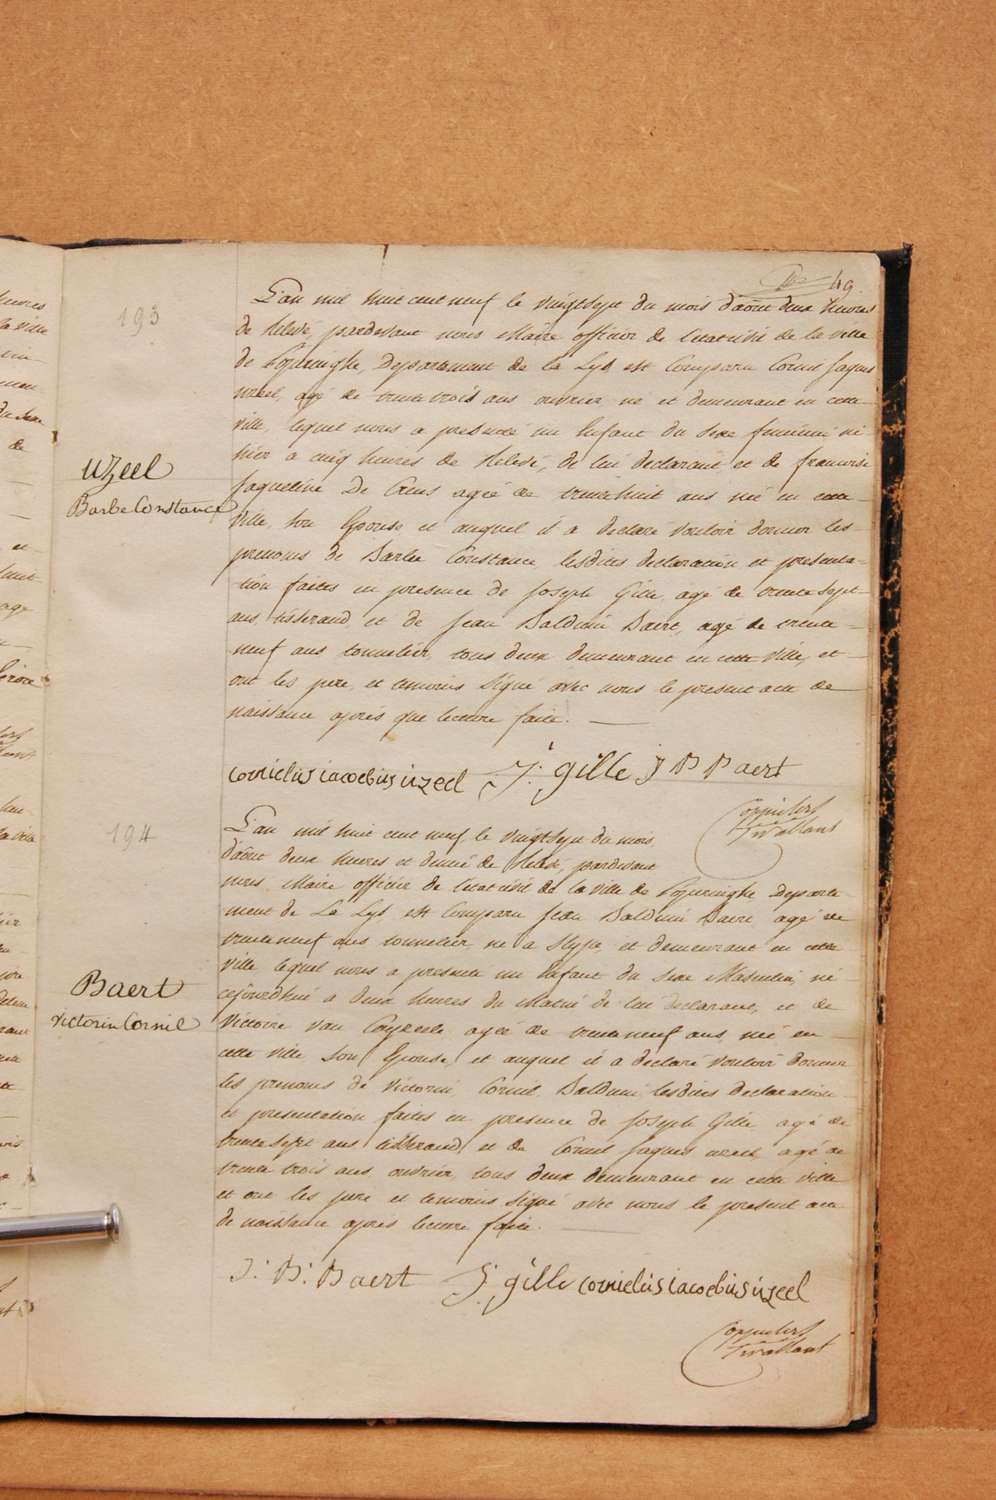 49.
193
L'an mil huit cent neuf le vingtsept du mois d'août deux heures
de relevé, pardevant nous Maire officier de l'etat civil de la ville
de Poperinghe, Departement de la Lys est Comparu Cornil Jaques
uzeel, agé de trente trois ans ouvrier né et demeurant en cette
ville, lequel nous a presenté un Enfant du sexe feminin né
hier a cinq heures de Relevé, de lui declarant et de francoise
Jaqueline De Cous agée de trente huit ans née en cette
ville, son Epouse et auquel il a declaré vouloir donner les
prenoms de Barbe Constance, lesdites declaration et presenta-
tion faites en presence de Joseph Gille, agé de trente sept
ans, tisserand, et de Jean Balduin Baert, agé de trente
neuf ans tonnelier, tous deux demeurant en cette ville, et
ont les pere, et temoins signé avec nous le present acte de
naissance après que lecture faite.
uzeel
Barbe Constance
cornielius iacoebius uzeel J: gille J B Baert
194
L'an mil huit cent neuf, le vingtsept du mois
d'août deux heures et demie de Relevé, pardevant
nous Maire officier de l'etat civil de la ville de Poperinghe Departe
ment de La Lys, est Comparu Jean Balduin Baert agé de
trente neuf ans tonnelier, né a Slype, et demeurant en cette
ville lequel nous a presenté un Enfant du sexe Masculin, né
cejourdhui a deux heures du Matin de lui declarant, et de
Victoire van agée de trente neuf ans, née en
cette ville son Epouse, et auquel il a declaré vouloir donner
les prenoms de Victorin, Cornil, Balduin, lesdites declaration
et presentation faites en presence de Joseph Gille agé de
trente sept ans tisserand, et de Cornil Jaques uzeel agé de
trente trois ans, ouvrier, tous deux demeurant en cette ville
et ont les pere et temoins signé avec nous le present acte
de naissance après lecture faite.
Baert
victorin Cornil
J: B: Baert J: gille cornielius iacoebius uzeel